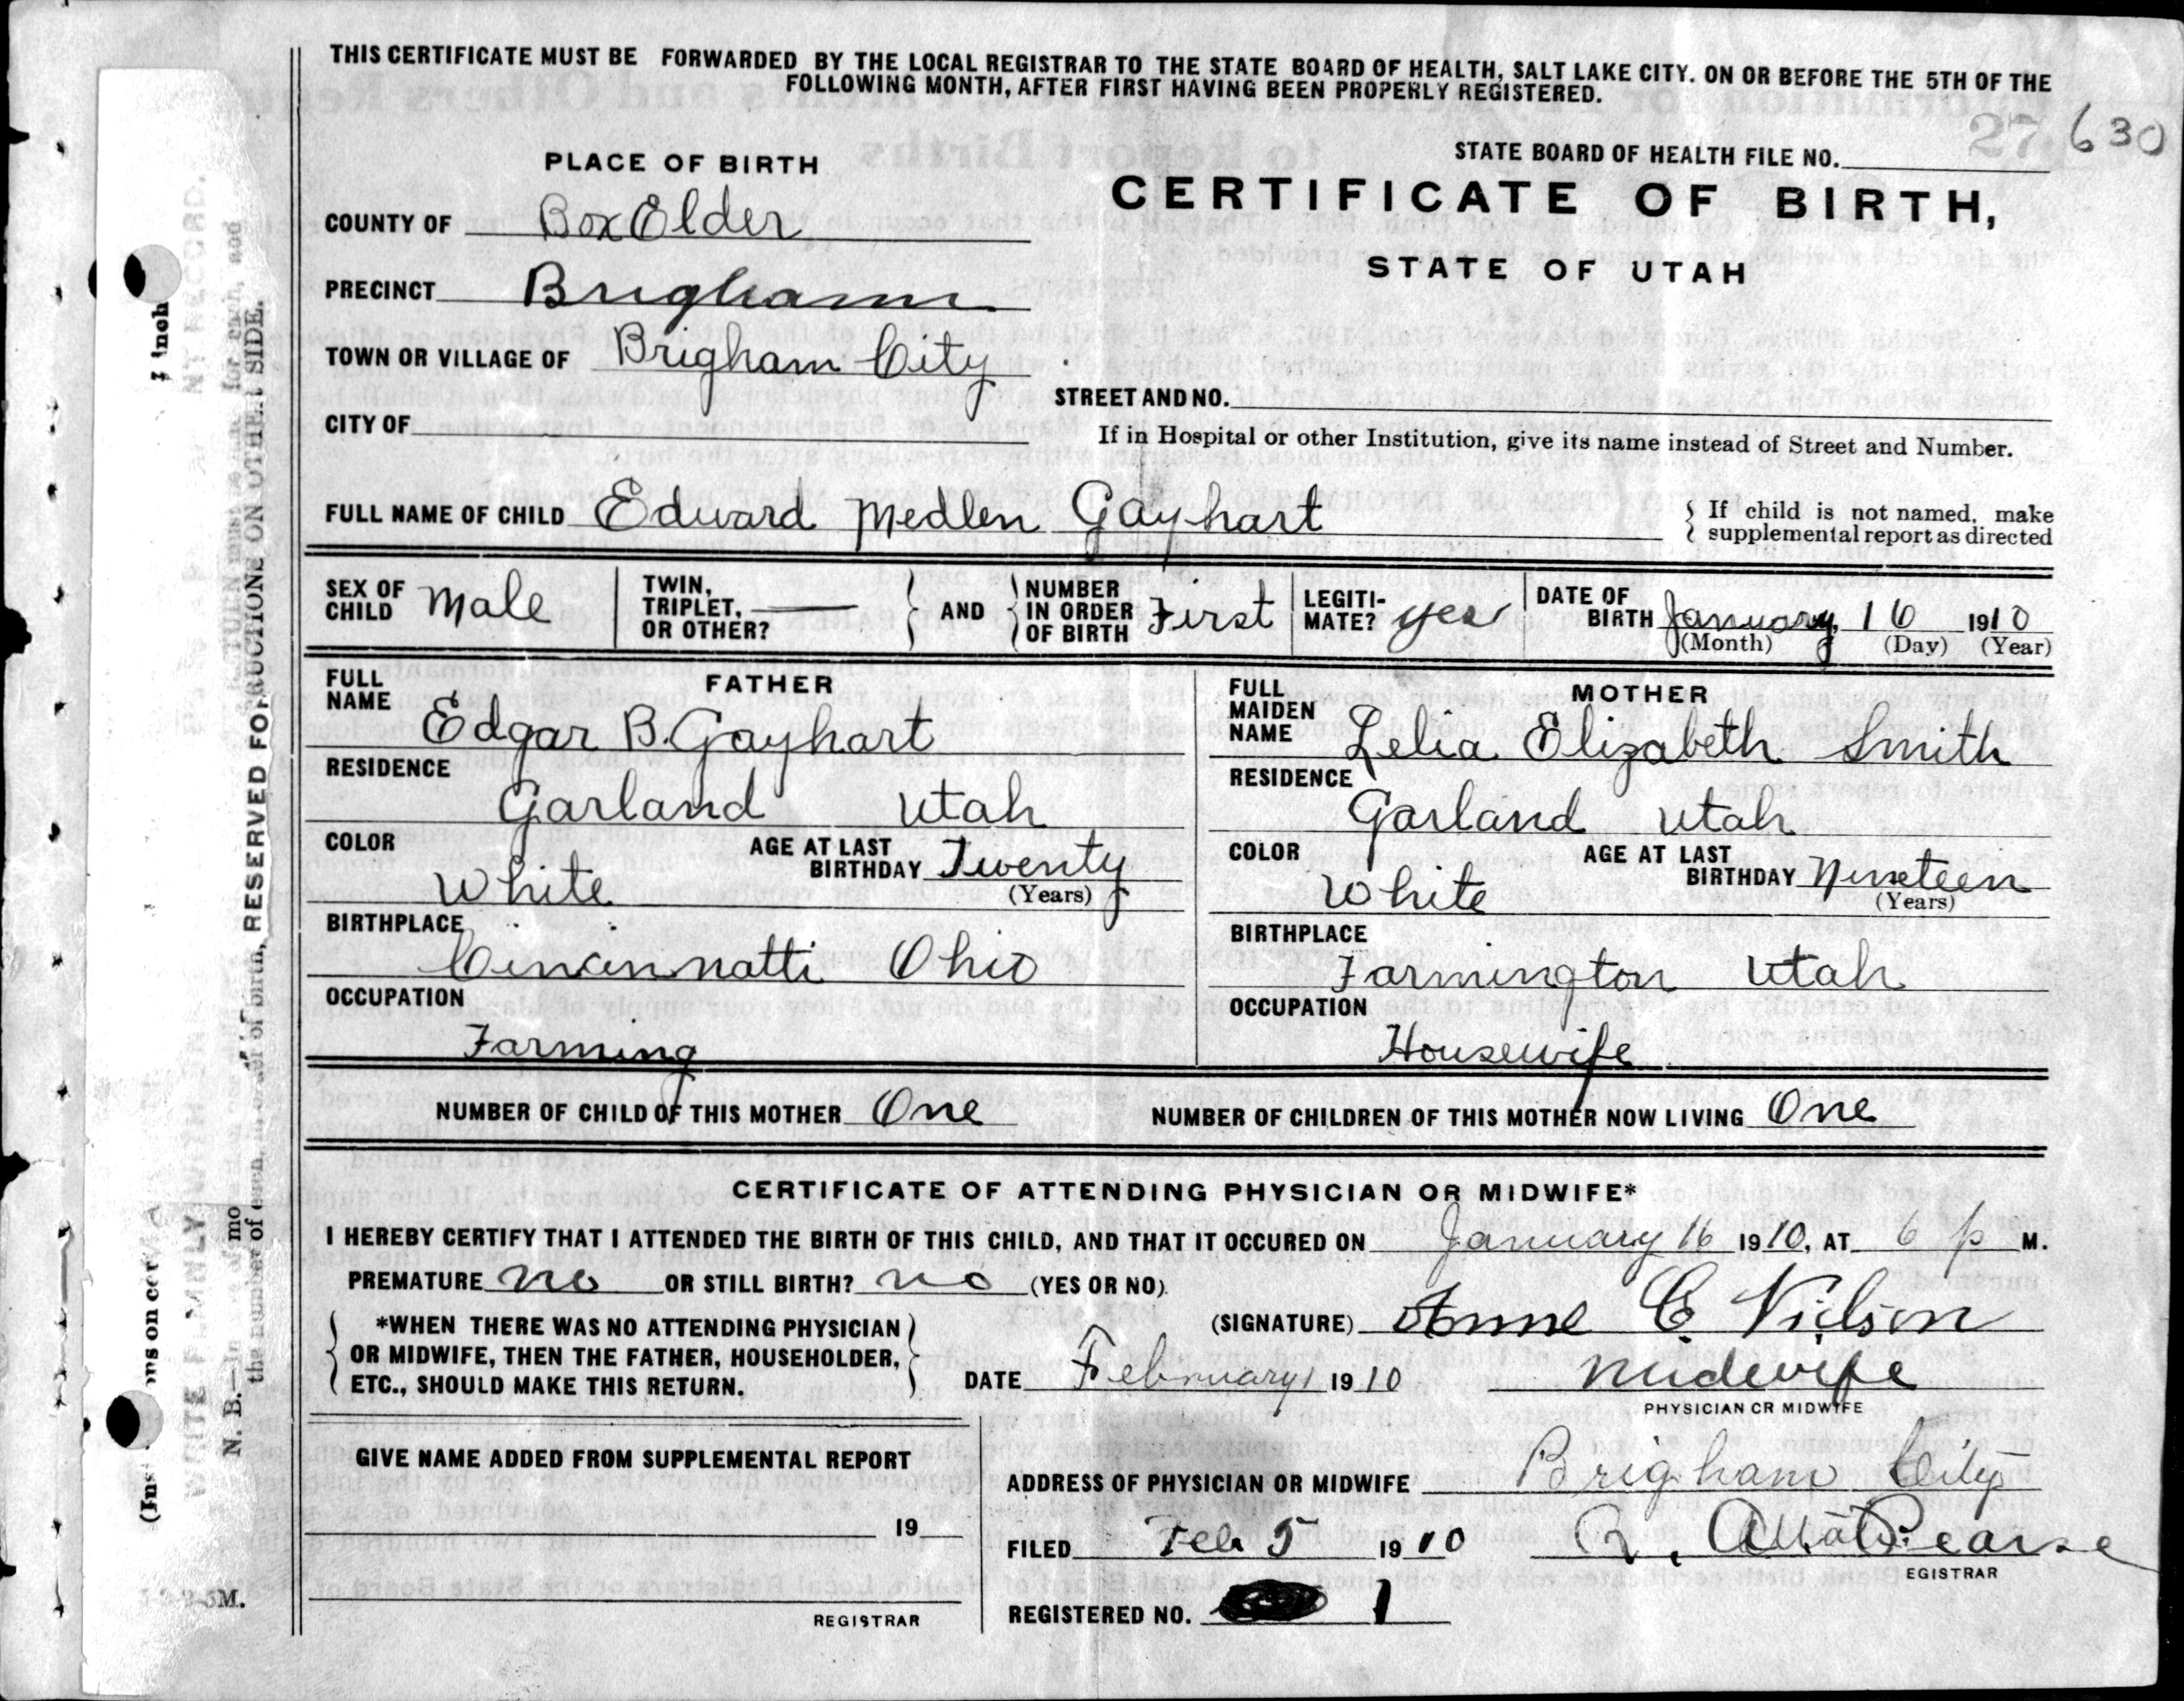 THIS CERTIFICATE MUST BE FORWARDED BY THE LOCAL REGISTRAR TO THE STATE BOARD OF HEALTH, SALT LAKE CITY. ON OR BEFORE THE 5TH OF THE
FOLLOWING MONTH, AFTER FIRST HAVING BEEN PROPERLY REGISTERED.
27 630
PLACE OF BIRTH
STATE BOARD OF HEALTH FILE NO.
CERTIFICATE OF BIRTH,
STATE OF UTAH
COUNTY OF Box Elder
PRECINCT Brigham
TOWN OR VILLAGE OF Brigham City
STREET AND NO.
CITY OF
If in Hospital or other Institution, give its name instead of Street and Number.
FULL NAME OF CHILD Edward Medlen Gayhart
If child is not named, make
supplemental report as directed
SEX OF CHILD Male
TWIN, TRIPLET, OR OTHER? —
AND NUMBER IN ORDER OF BIRTH First
LEGITI-MATE? yes
DATE OF BIRTH January, 16 1910
(Month) (Day) (Year)
FATHER
FULL NAME Edgar B. Gayhart
RESIDENCE
Garland Utah
COLOR White
AGE AT LAST BIRTHDAY Twenty
(Years)
BIRTHPLACE
Cincinnatti Ohio
OCCUPATION
Farming
MOTHER
FULL MAIDEN NAME Lelia Elizabeth Smith
RESIDENCE
Garland Utah
COLOR White
AGE AT LAST BIRTHDAY Nineteen
(Years)
BIRTHPLACE
Farmington Utah
OCCUPATION
Housewife
NUMBER OF CHILD OF THIS MOTHER One NUMBER OF CHILDREN OF THIS MOTHER NOW LIVING One
CERTIFICATE OF ATTENDING PHYSICIAN OR MIDWIFE*
I HEREBY CERTIFY THAT I ATTENDED THE BIRTH OF THIS CHILD, AND THAT IT OCCURED ON January 16 1910, AT 6 p M.
PREMATURE no OR STILL BIRTH? no (YES OR NO).
*WHEN THERE WAS NO ATTENDING PHYSICIAN
OR MIDWIFE, THEN THE FATHER, HOUSEHOLDER,
ETC., SHOULD MAKE THIS RETURN.
(SIGNATURE) Anne C. Nielson
DATE February 1 1910 midewife
PHYSICIAN OR MIDWIFE
GIVE NAME ADDED FROM SUPPLEMENTAL REPORT
19
REGISTRAR
ADDRESS OF PHYSICIAN OR MIDWIFE Brigham City
FILED Feb 5 1910 Pearse
EGISTRAR
REGISTERED NO. 1
RESERVED FOR INSTRUCTIONS ON OTHER SIDE.
N. B.—In
the number of each, in order of birth,
5M.